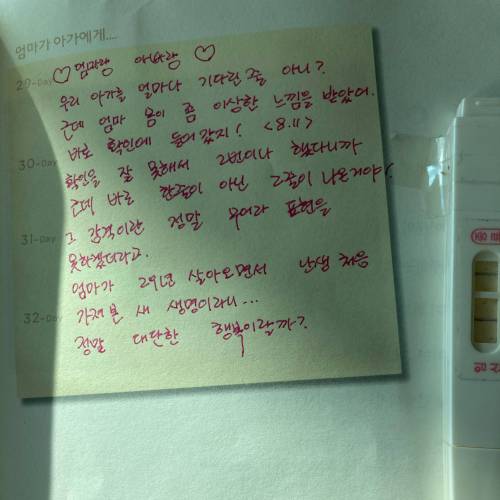 엄마가 아가에게....
♡엄마랑 아빠랑♡
29-Day
우리 아가를 얼마나 기다린 줄 아니?
근데 엄마 몸이 좀 이상한 느낌을 받았어.
바로 확인에 들어갔지! <8.11>
30-Day
확인을 잘 못해서 2번이나 했다니까
근데 바로 한줄이 아닌 2줄이 나온거야!
그 감격이란 정말 무어라 표현을
31-Day
못하겠더라고.
엄마가 29년 살아오면서 난생 처음
가져본 새 생명이라니...
32-Day
정말 대단한 행복이랄까?